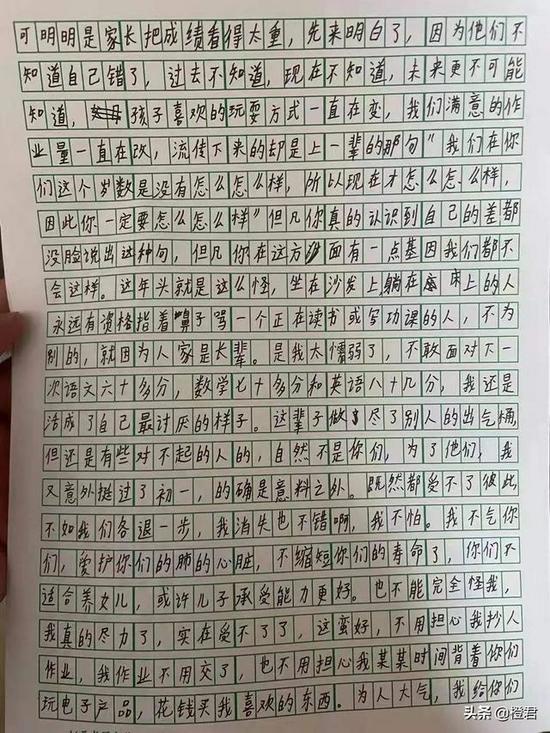 可明明是家长把成绩看得太重，先来明白了，因为他们不
知道自己错了，过去不知道，现在不知道，未来更不可能
知道，孩子喜欢的玩耍方式一直在变，我们满意的作
业量一直在改，流传下来的却是上一辈的那句"我们在你
们这个岁数是没有怎么怎么样，所以现在才怎么怎么样，
因此你一定要怎么怎么样"但凡你真的认识到自己的差都
没脸说出这种句，但凡你在这方面有一点基因我们都不
会这样。这年头就是这么怪，坐在沙发上躺在床上的人
永远有资格指着鼻子骂一个正在读书或写功课的人，不为
别的，就因为人家是长辈。是我太懦弱了，不敢面对下一
次语文六十多分，数学七十多分和英语八十几分，我还是
活成了自己最讨厌的样子。这辈子做尽了别人的出气桶，
但还是有些对不起的人的，自然不是你们，为了他们，我
又意外挺过了初一，的确是意料之外。既然都受不了彼此，
不如我们各退一步，我消失也不错啊，我不怕。我不气你
们，爱护你们的肺的心脏，不缩短你们的寿命了，你们不
适合养女儿，或许儿子承受能力更好。也不能完全怪我，
我真的尽力了，实在受不了了，这蛮好，不用担心我抄人
作业，我作业不用交了，也不用担心我某某时间背着你们
玩电子产品，花钱买我喜欢的东西。为人大气，我给你们
头条@橙君